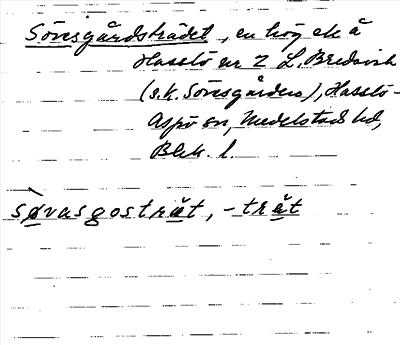 Sönesgårdsträdet, en hög ek å
Hasslö nr 2 L. Bredavik
(s.k. Sönesgården), Hasslö-
Aspö sn, Medelstad hd,
Blek. l.
søvasgosträt, -trät